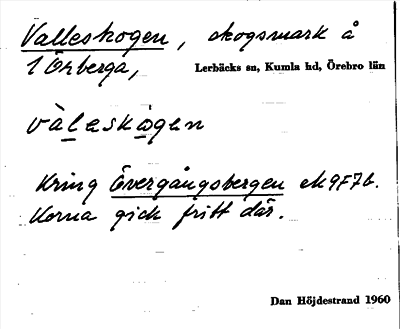 Valleskogen, skogsmark å
1 Örberga,
Lerbäcks sn, Kumla hd, Örebro län
vàleskògen
Kring Övergångsbergen ek 9F7b.
Korna gick fritt där.
Dan Höjdestrand 1960